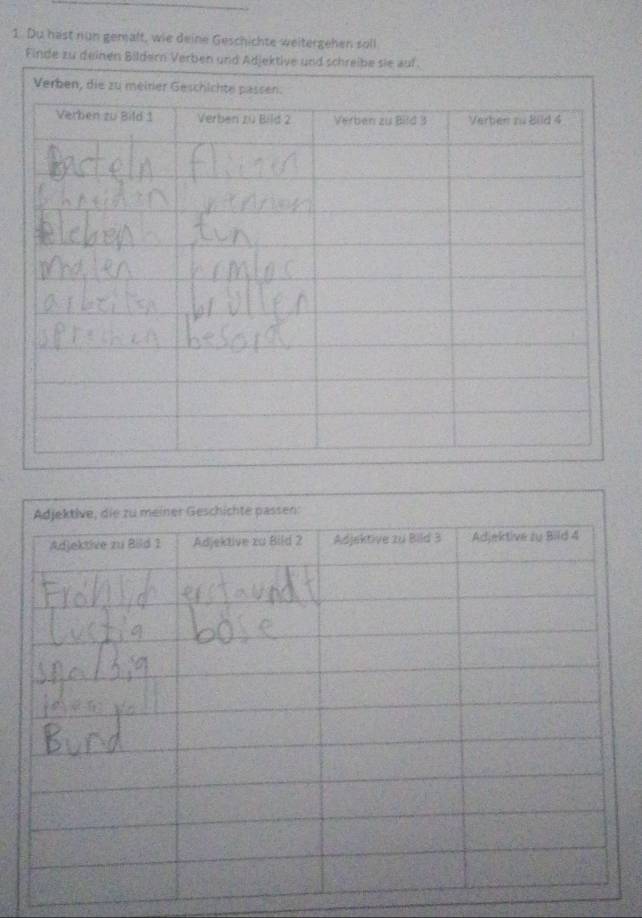 1. Du hast nun gemalt, wie deine Geschichte weitergehen soll.
Finde zu deinen Bildern Verben und Adjektive und schreibe sie auf.
Verben, die zu meiner Geschichte passen:
Verben zu Bild 1 Verben zu Bild 2 Verben zu Bild 3 Verben zu Bild 4
Basteln fliigen
rennen
kleben tun
malen
arbeiten brüllen
sprechen besorgt
Adjektive, die zu meiner Geschichte passen:
Adjektive zu Bild 1 Adjektive zu Bild 2 Adjektive zu Bild 3 Adjektive zu Bild 4
Fröhlich erstaundt
Lustig böse
spaßig
Bund